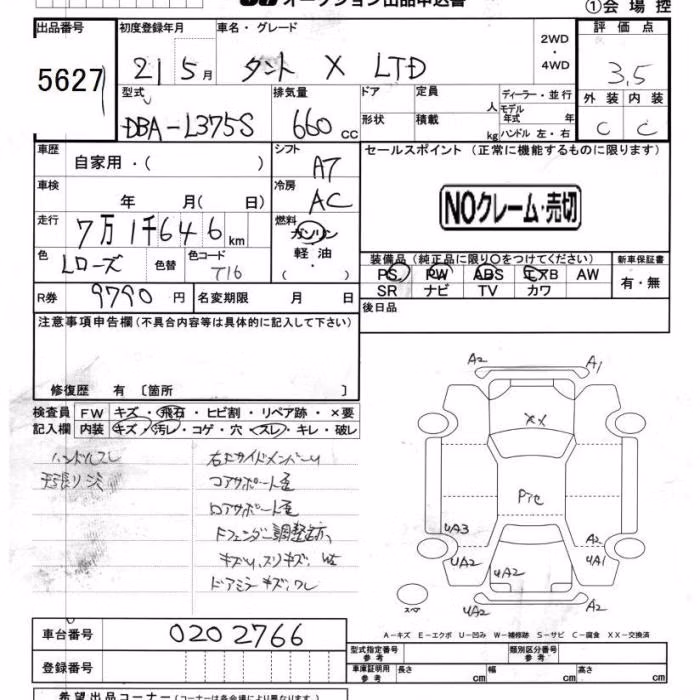 オークション出品申込書 ①会場控
出品番号 初度登録年月 車名・グレード 2WD・4WD 評価点
5627 21 5月 タント X LTD 3.5
型式 排気量 ドア 定員 人 ディーラー・並行 外装 内装
DBA-L375S 660cc 形状 積載 kg モデル年式 年 ハンドル 左・右 C C
車歴 自家用・( ) シフト A7 セールスポイント (正常に機能するものに限ります)
車検 年 月( 日) 冷房 AC NOクレーム・売切
走行 7万1千646km 燃料 ガソリン
色 Lローズ 色替 色コード T16 軽油・( )
装備品 (純正品に限り○をつけてください) 新車保証書
PS PW ABS エアB AW 有・無
SR ナビ TV カワ
R券 9790円 名変期限 月 日 後日品
注意事項申告欄 (不具合内容等は具体的に記入して下さい)
修復歴 有 [箇所 ]
検査員 FW キズ・飛石・ヒビ割・リペア跡・×要
記入欄 内装 キズ・汚レ・コゲ・穴・スレ・キレ・破レ
ハンドルスレ 右Fサイドメンバー
天張り コアサポート
コアサポート
Fフェンダー調整跡
キズ
ドアミラーキズ
A2 A1
XX
UA3 A2
UA2 UA1
UA2
スペア UA2 A2
A-キズ E-エクボ U-凹み W-補修跡 S-サビ C-腐食 XX-交換済
車台番号 0202766
登録番号
型式指定番号 参考 類別区分番号 参考
車庫証明用 参考 長さ cm 幅 cm 高さ cm
希望出品コーナー (コーナーは各会場により異なります。)